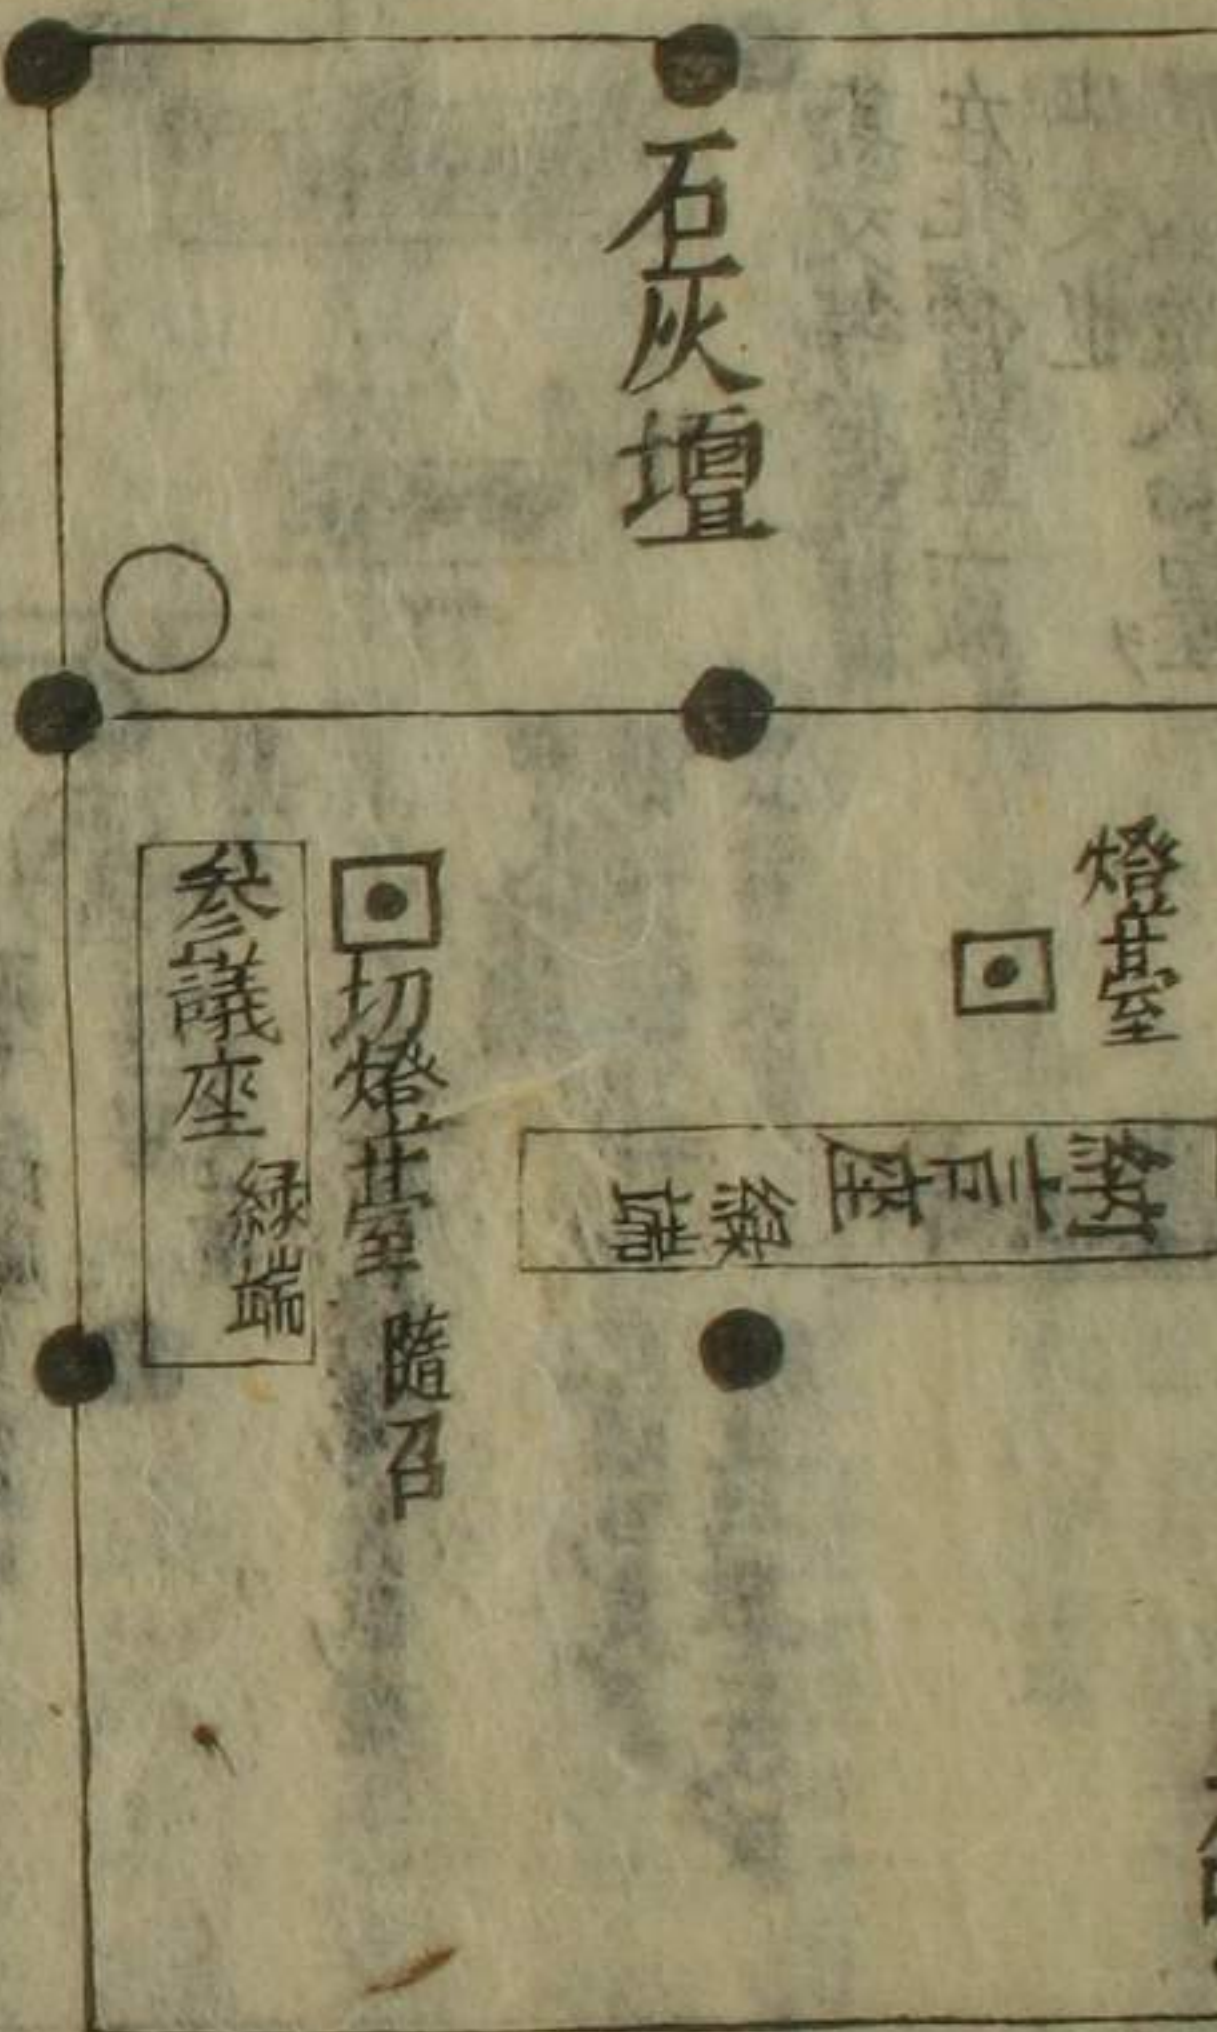 石灰壇
燈臺
納言座 緑端
切燈臺 随召
参議座 緑端